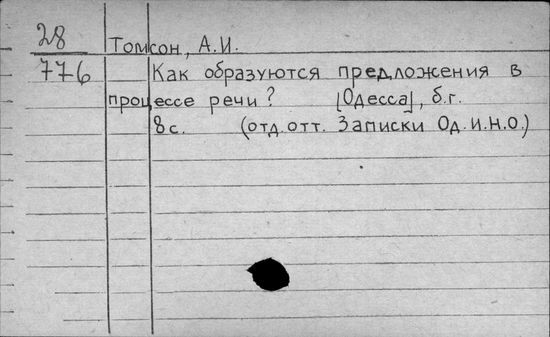 28
776
Томсон, А.И.
Как образуются предложения в
процессе речи? [Одесса], б.г.
8с. (отд. отт. Записки Од. и.н.о.)